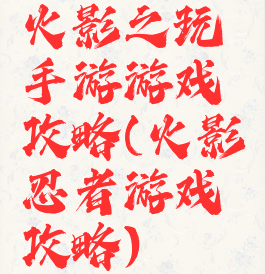 火影之玩
手游游戏
攻略(火影
忍者游戏
攻略)